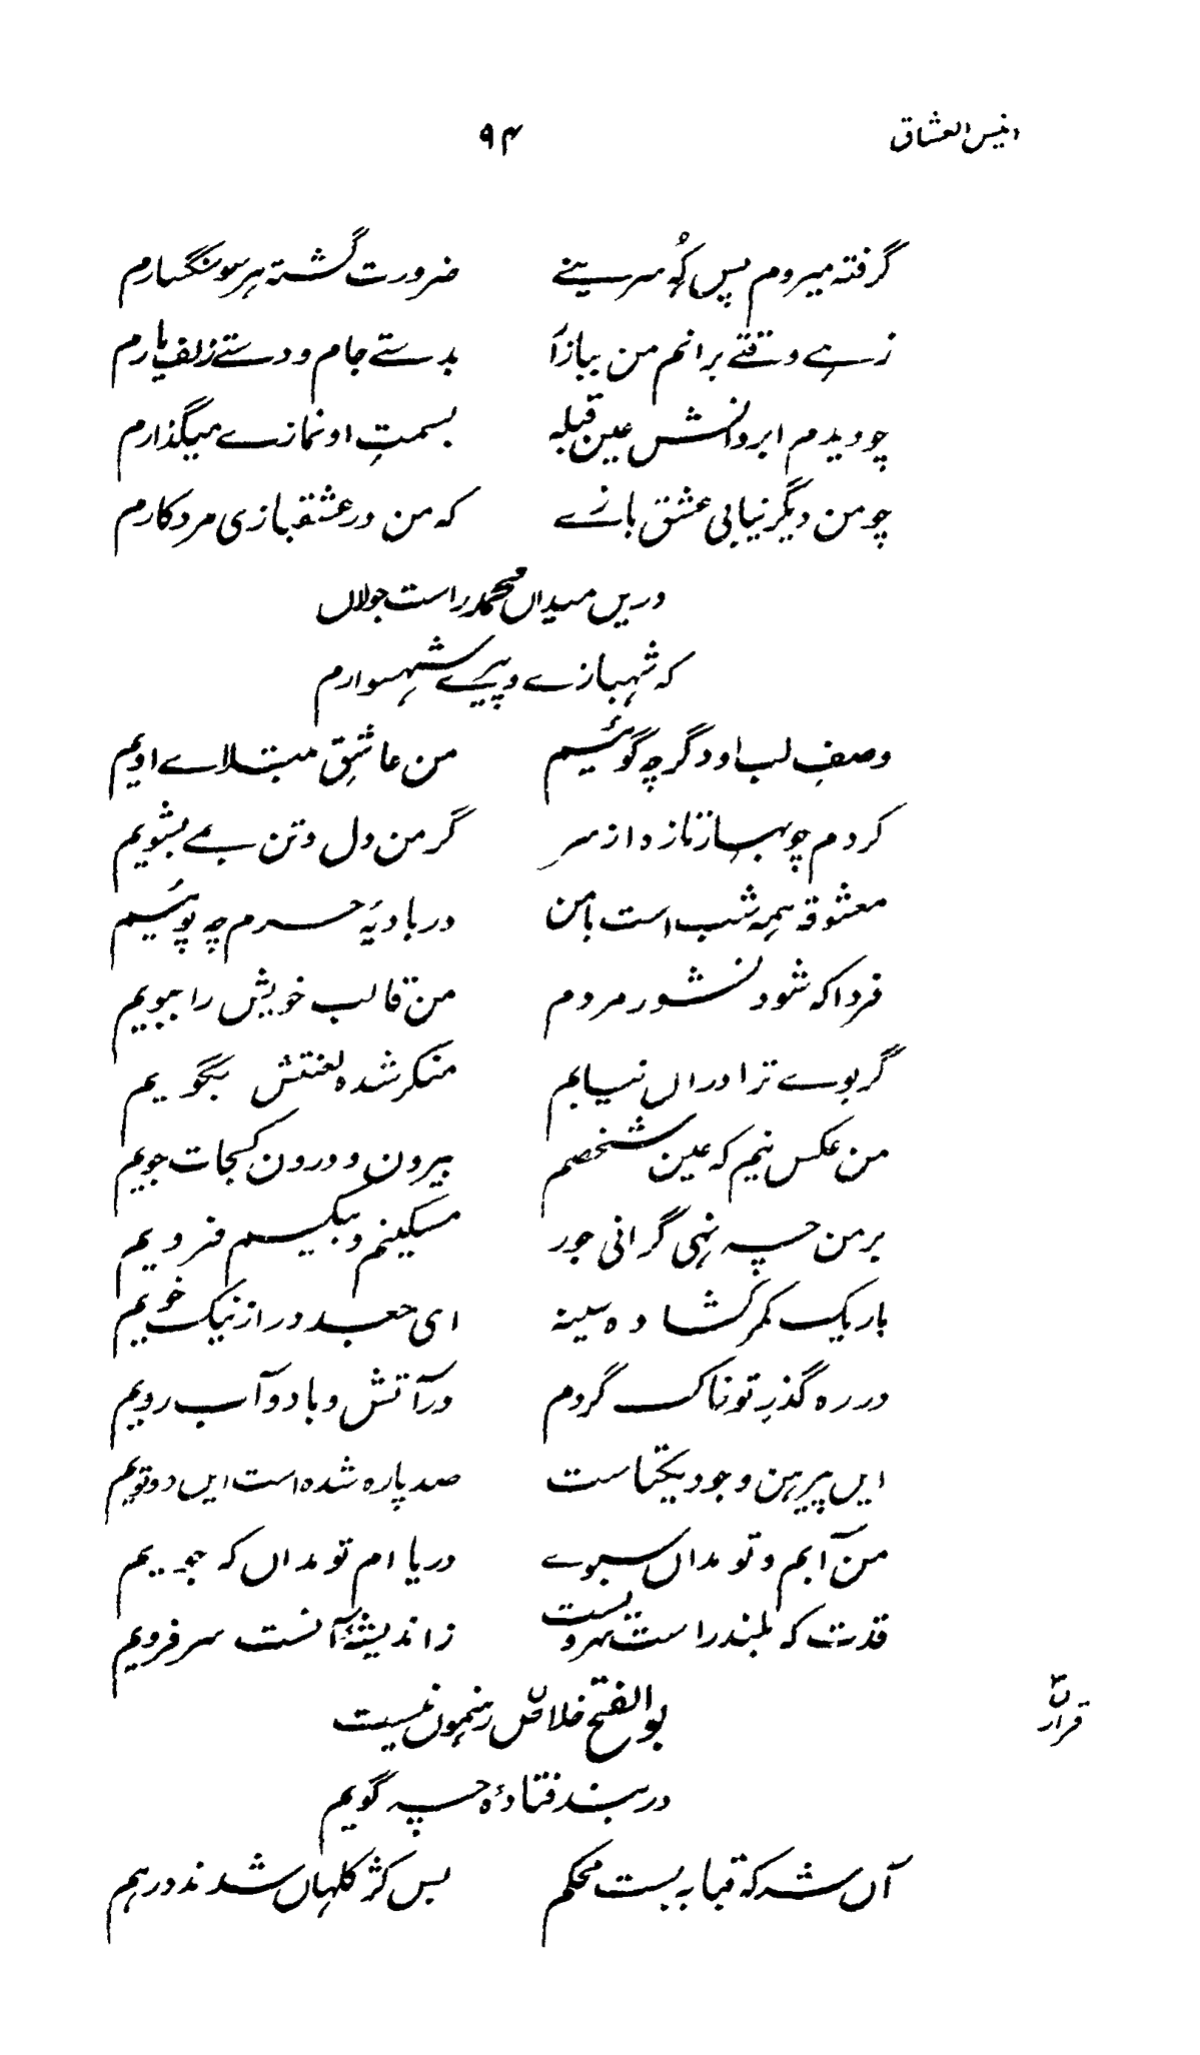 انیس العشاق ۹۴
گرفته میروم پس کُه سرینے ضرورت گشته هر سو سنگسارم
زہے وقتے برانم من ببازآ بدستے جام و دستے زلف یارم
چو دیدم ابروانش عین قبله بسمتِ او نمازے میگذارم
چو من دیگر نیابی عشق بازے که من در عشقبازی مرد کارم
دریں میداں محمد راست جولاں
که شهبازے و پیرے شهسوارم
وصفِ لب او دگر چه گوئیم من عاشقِ مبتلاے اویم
کردم چو بہ تازه از سر گر من دل و تن بمے بشویم
معشوقه همه شب است بامن در بادیۂ حرم چه پوئیم
فردا که شود نشور مردم من قالب خویش را ببویم
گر بوے ترا دراں نیابم منکر شده لعنتش بگویم
من عکس نیم که عین شخصم بیرون و درون کجات جویم
بر من چه نهی گرانی جور مسکینم و بیکسیم فرویم
باریک کمر کشاده سینه ای جعد دراز نیک خویم
در ره گذرِ تو خاک گردم در آتش و باد و آب رویم
ایں پیرہن وجود یکتاست صد پاره شده است ایں دوتویم
من آبم و تو مداں سبوے دریا ام تو مداں که جویم
قدت که بلند راست سرویست ز اندیشۂ آنست سر فرویم
بوالفتح خلاص رہنموں نیست
در بند فتادۂ چه گویم
ں قرار
آں شہ که قبا به بست محکم بس کژ کلہاں شدند درہم